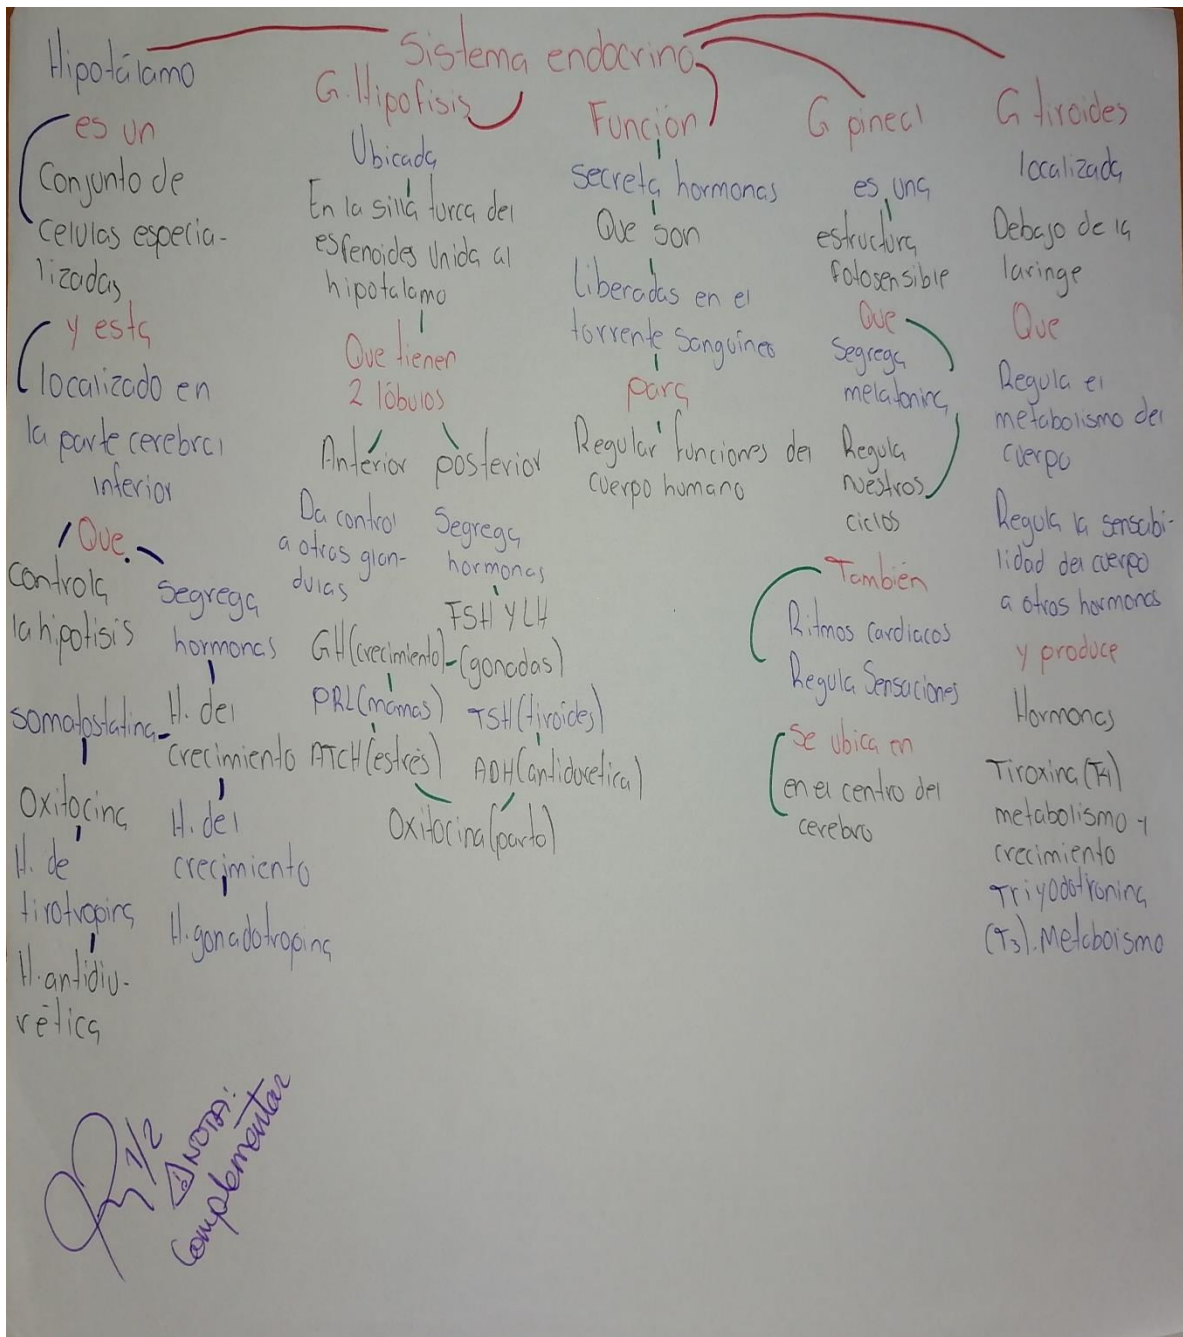 Sistema endocrino
Hipotálamo
es un
Conjunto de
celulas especia-
lizadas
y esta
localizado en
la parte cerebral
inferior
Que
controla
la hipofisis
somatostatina
Oxitocina
H. de
tirotropina
H. antidiu-
rética
Segrega
hormonas
H. del
crecimiento
H. del
crecimiento
H. gonadotropina
G. Hipofisis
Ubicada
En la silla turca del
esfenoides Unida al
hipotalamo
Que tienen
2 lóbulos
Anterior posterior
Da control
a otras glan-
dulas
GH(crecimiento)
PRL(mamas)
ATCH(estres)
Segrega
hormonas
FSH Y LH
(gonadas)
TSH(tiroides)
ADH(antiduretica)
Oxitocina(parto)
Función
Secreta hormonas
Que son
liberadas en el
torrente sanguineo
para
Regular funciones del
cuerpo humano
G pineal
es una
estructura
fotosensible
Que
Segrega
melatonina
Regula
nuestros
ciclos
También
Ritmos cardiacos
Regula Sensaciones
Se ubica en
en el centro del
cerebro
G tiroides
localizada
Debajo de la
laringe
Que
Regula el
metabolismo del
cuerpo
Regula la sensabi-
lidad del cuerpo
a otros hormonas
y produce
Hormonas
Tiroxina(T4)
metabolismo y
crecimiento
Triyodotronina
(T3). Metaboismo
1/2
NOTA:
Complementar